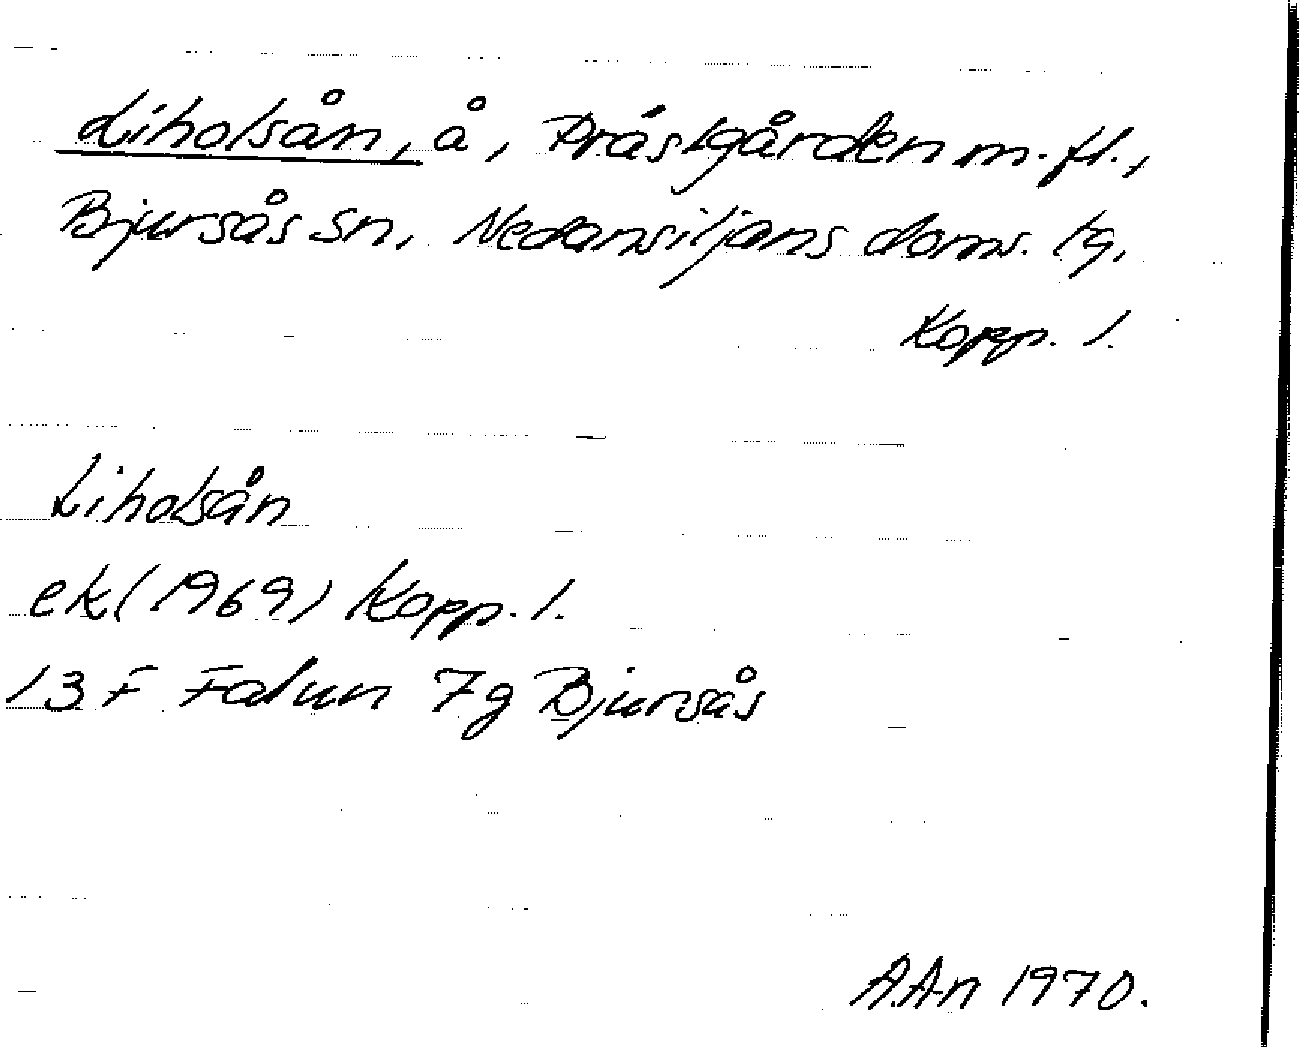 Liholsån, å, Prästgården m.fl.,
Bjursås sn, Nedansiljans doms. tg,
Kopp. l.
Liholsån
ek (1969) Kopp. l.
13 F Falun 7g Bjursås
A.A-n 1970.